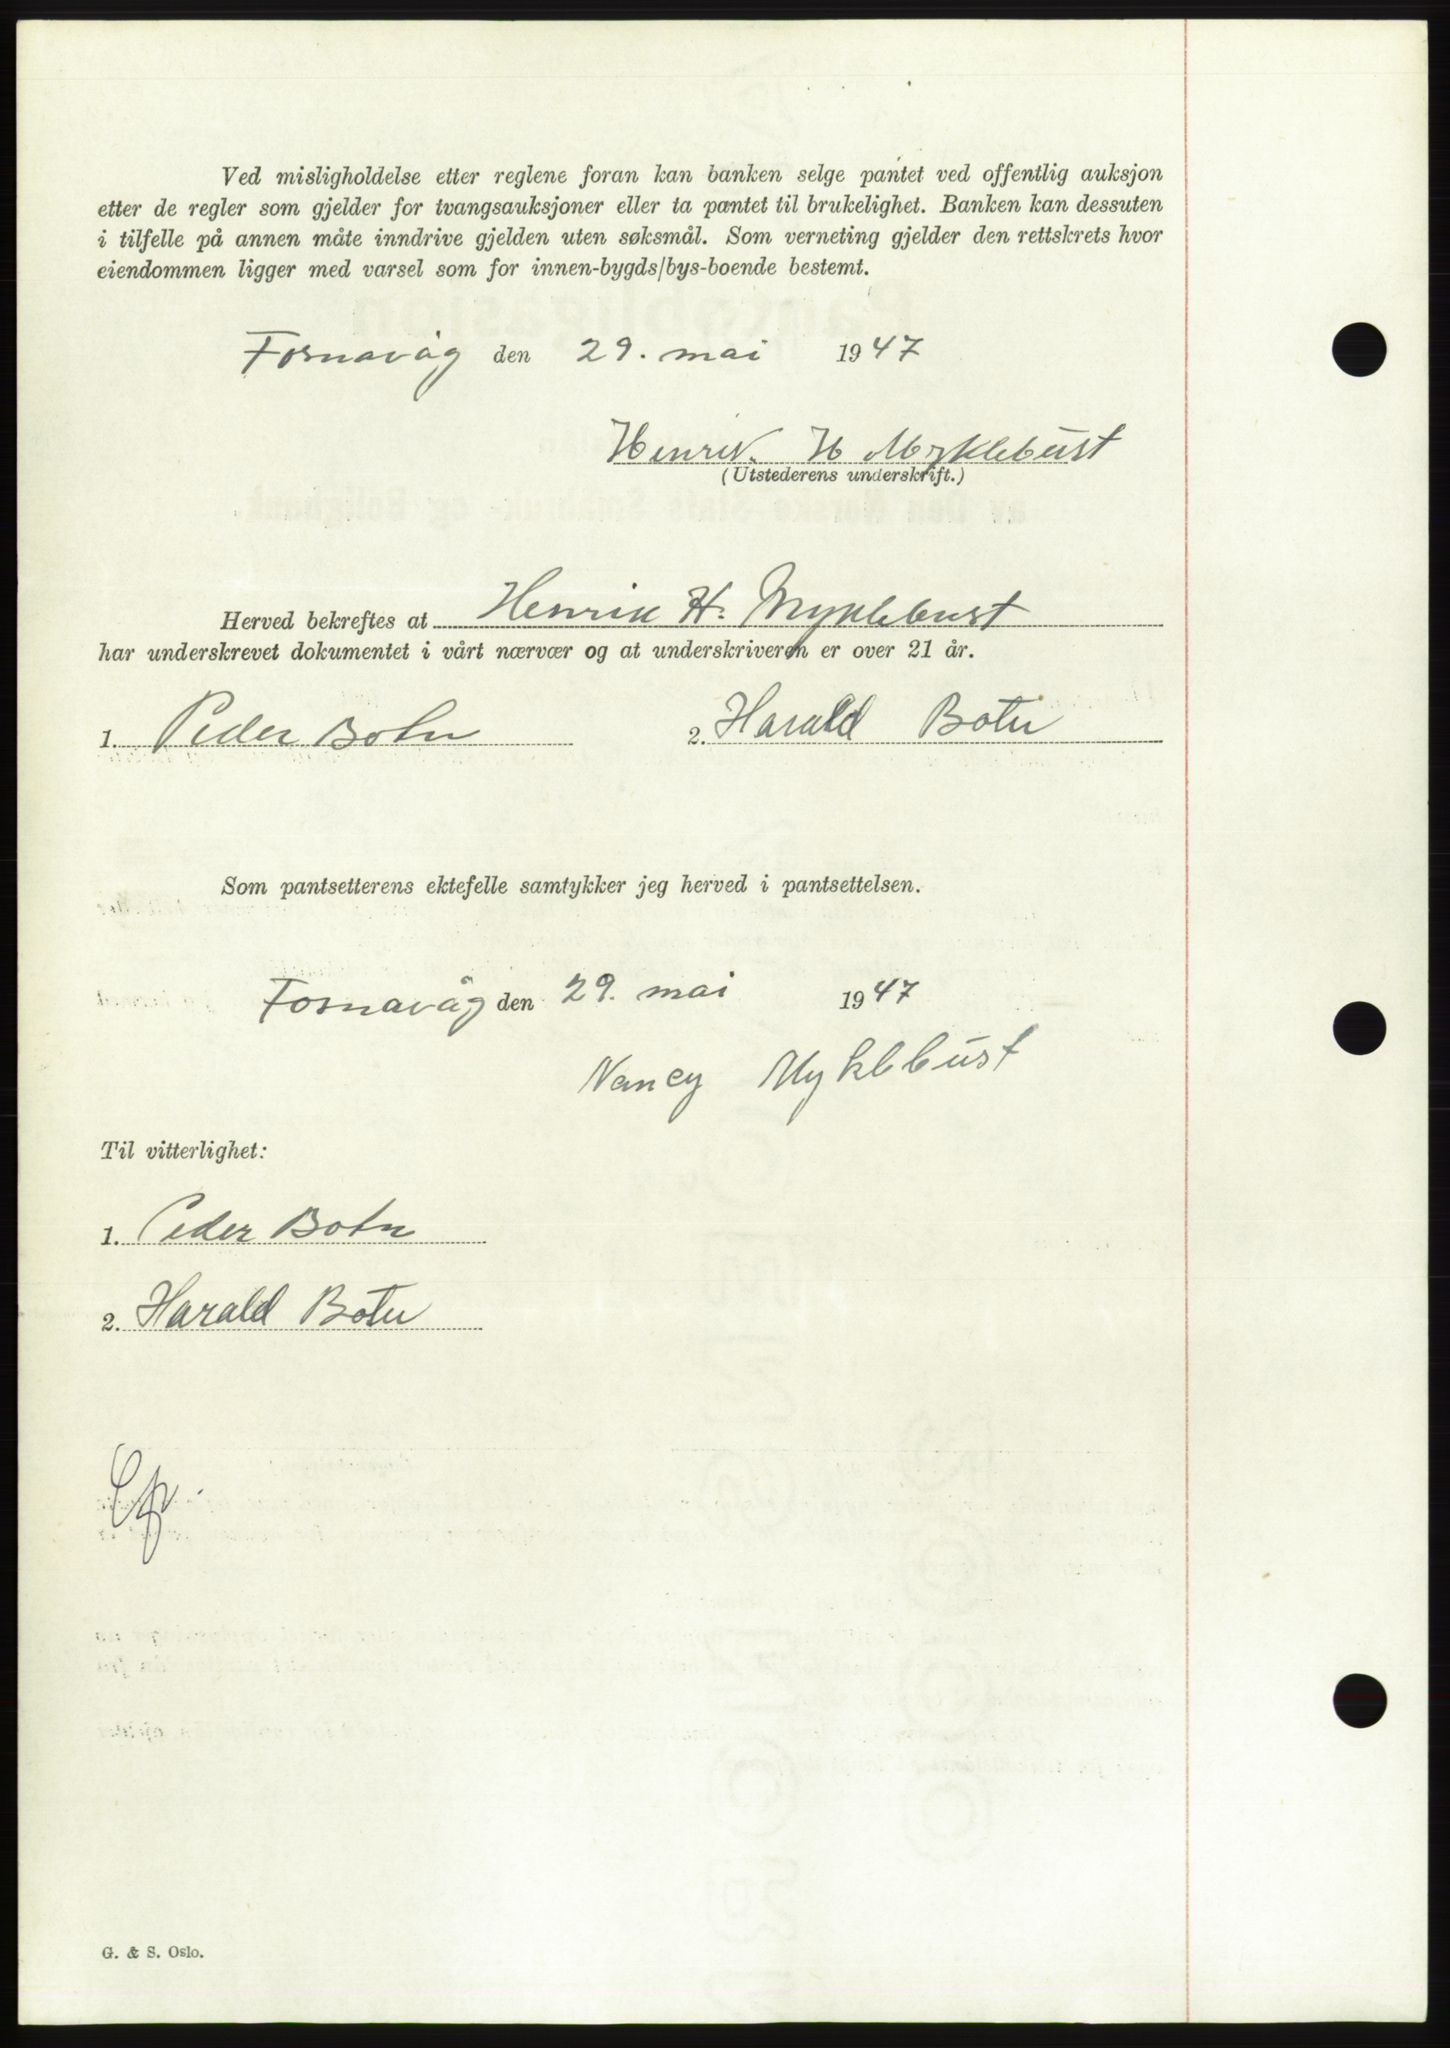 Ved misligholdelse etter reglene foran kan banken selge pantet ved offentlig auksjon
etter de regler som gjelder for tvangsauksjoner eller ta pantet til brukelighet. Banken kan dessuten
i tilfelle på annen måte inndrive gjelden uten søksmål. Som verneting gjelder den rettskrets hvor
eiendommen ligger med varsel som for innen-bygds/bys-boende bestemt.
Fosnavåg den 29. mai 1947
Henrik H Myklebust
(Utstederens underskrift.)
Herved bekreftes at Henrik H. Myklebust
har underskrevet dokumentet i vårt nærvær og at underskriveren er over 21 år.
1. Peder Botn 2. Harald Botn
Som pantsetterens ektefelle samtykker jeg herved i pantsettelsen.
Fosnavåg den 29. mai 1947
Nancy Myklebust
Til vitterlighet:
1. Peder Botn
2. Harald Botn
G. & S. Oslo.